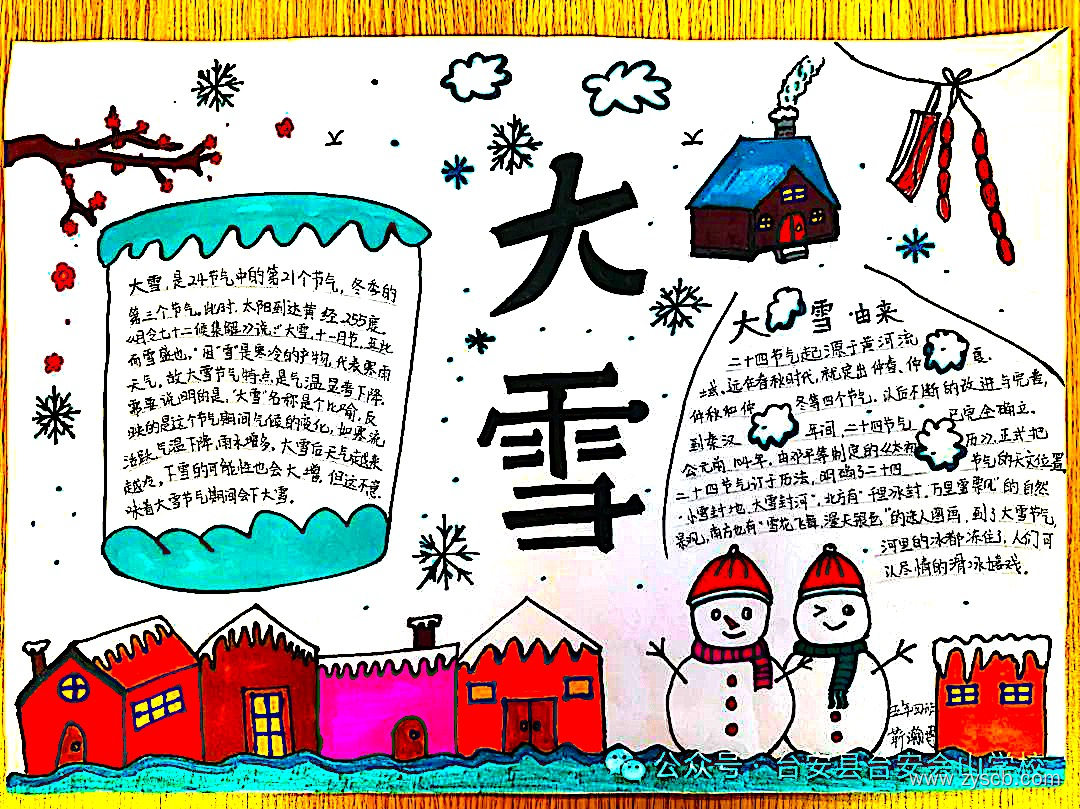 大雪,是24节气中的第21个节气,冬季的
第三个节气。此时,太阳到达黄经255度。
《月令七十二候集解》说:"大雪,十一月节,至此
而雪盛也。"因"雪"是寒冷的产物,代表寒雨
天气。故大雪节气特点是气温显著下降、
需要说明的是,"大雪"名称是个比喻,反
映的是这个节气期间气候的变化,如寒流
活跃、气温下降、雨水增多。大雪后天气越来
越冷,下雪的可能性也会大增,但这不意
味着大雪节气期间会下大雪。
大
雪
大雪由来
二十四节气起源于黄河流
域。远在春秋时代,就定出仲春、仲夏、
仲秋和仲冬等四个节气。以后不断的改进与完善,
到秦汉年间,二十四节气已完全确立。
公元前104年,由邓平等制定的《太初历》,正式把
二十四节气订于历法,明确了二十四节气的天文位置
"小雪封地,大雪封河",北方有"千里冰封,万里雪飘"的自然
景观,南方也有"雪花飞舞,漫天银色"的迷人图画。到了大雪节气,
河里的冰都冻住了,人们可
以尽情的滑冰嬉戏。
公众号 台安县台安会山学校
www.zyscb.com